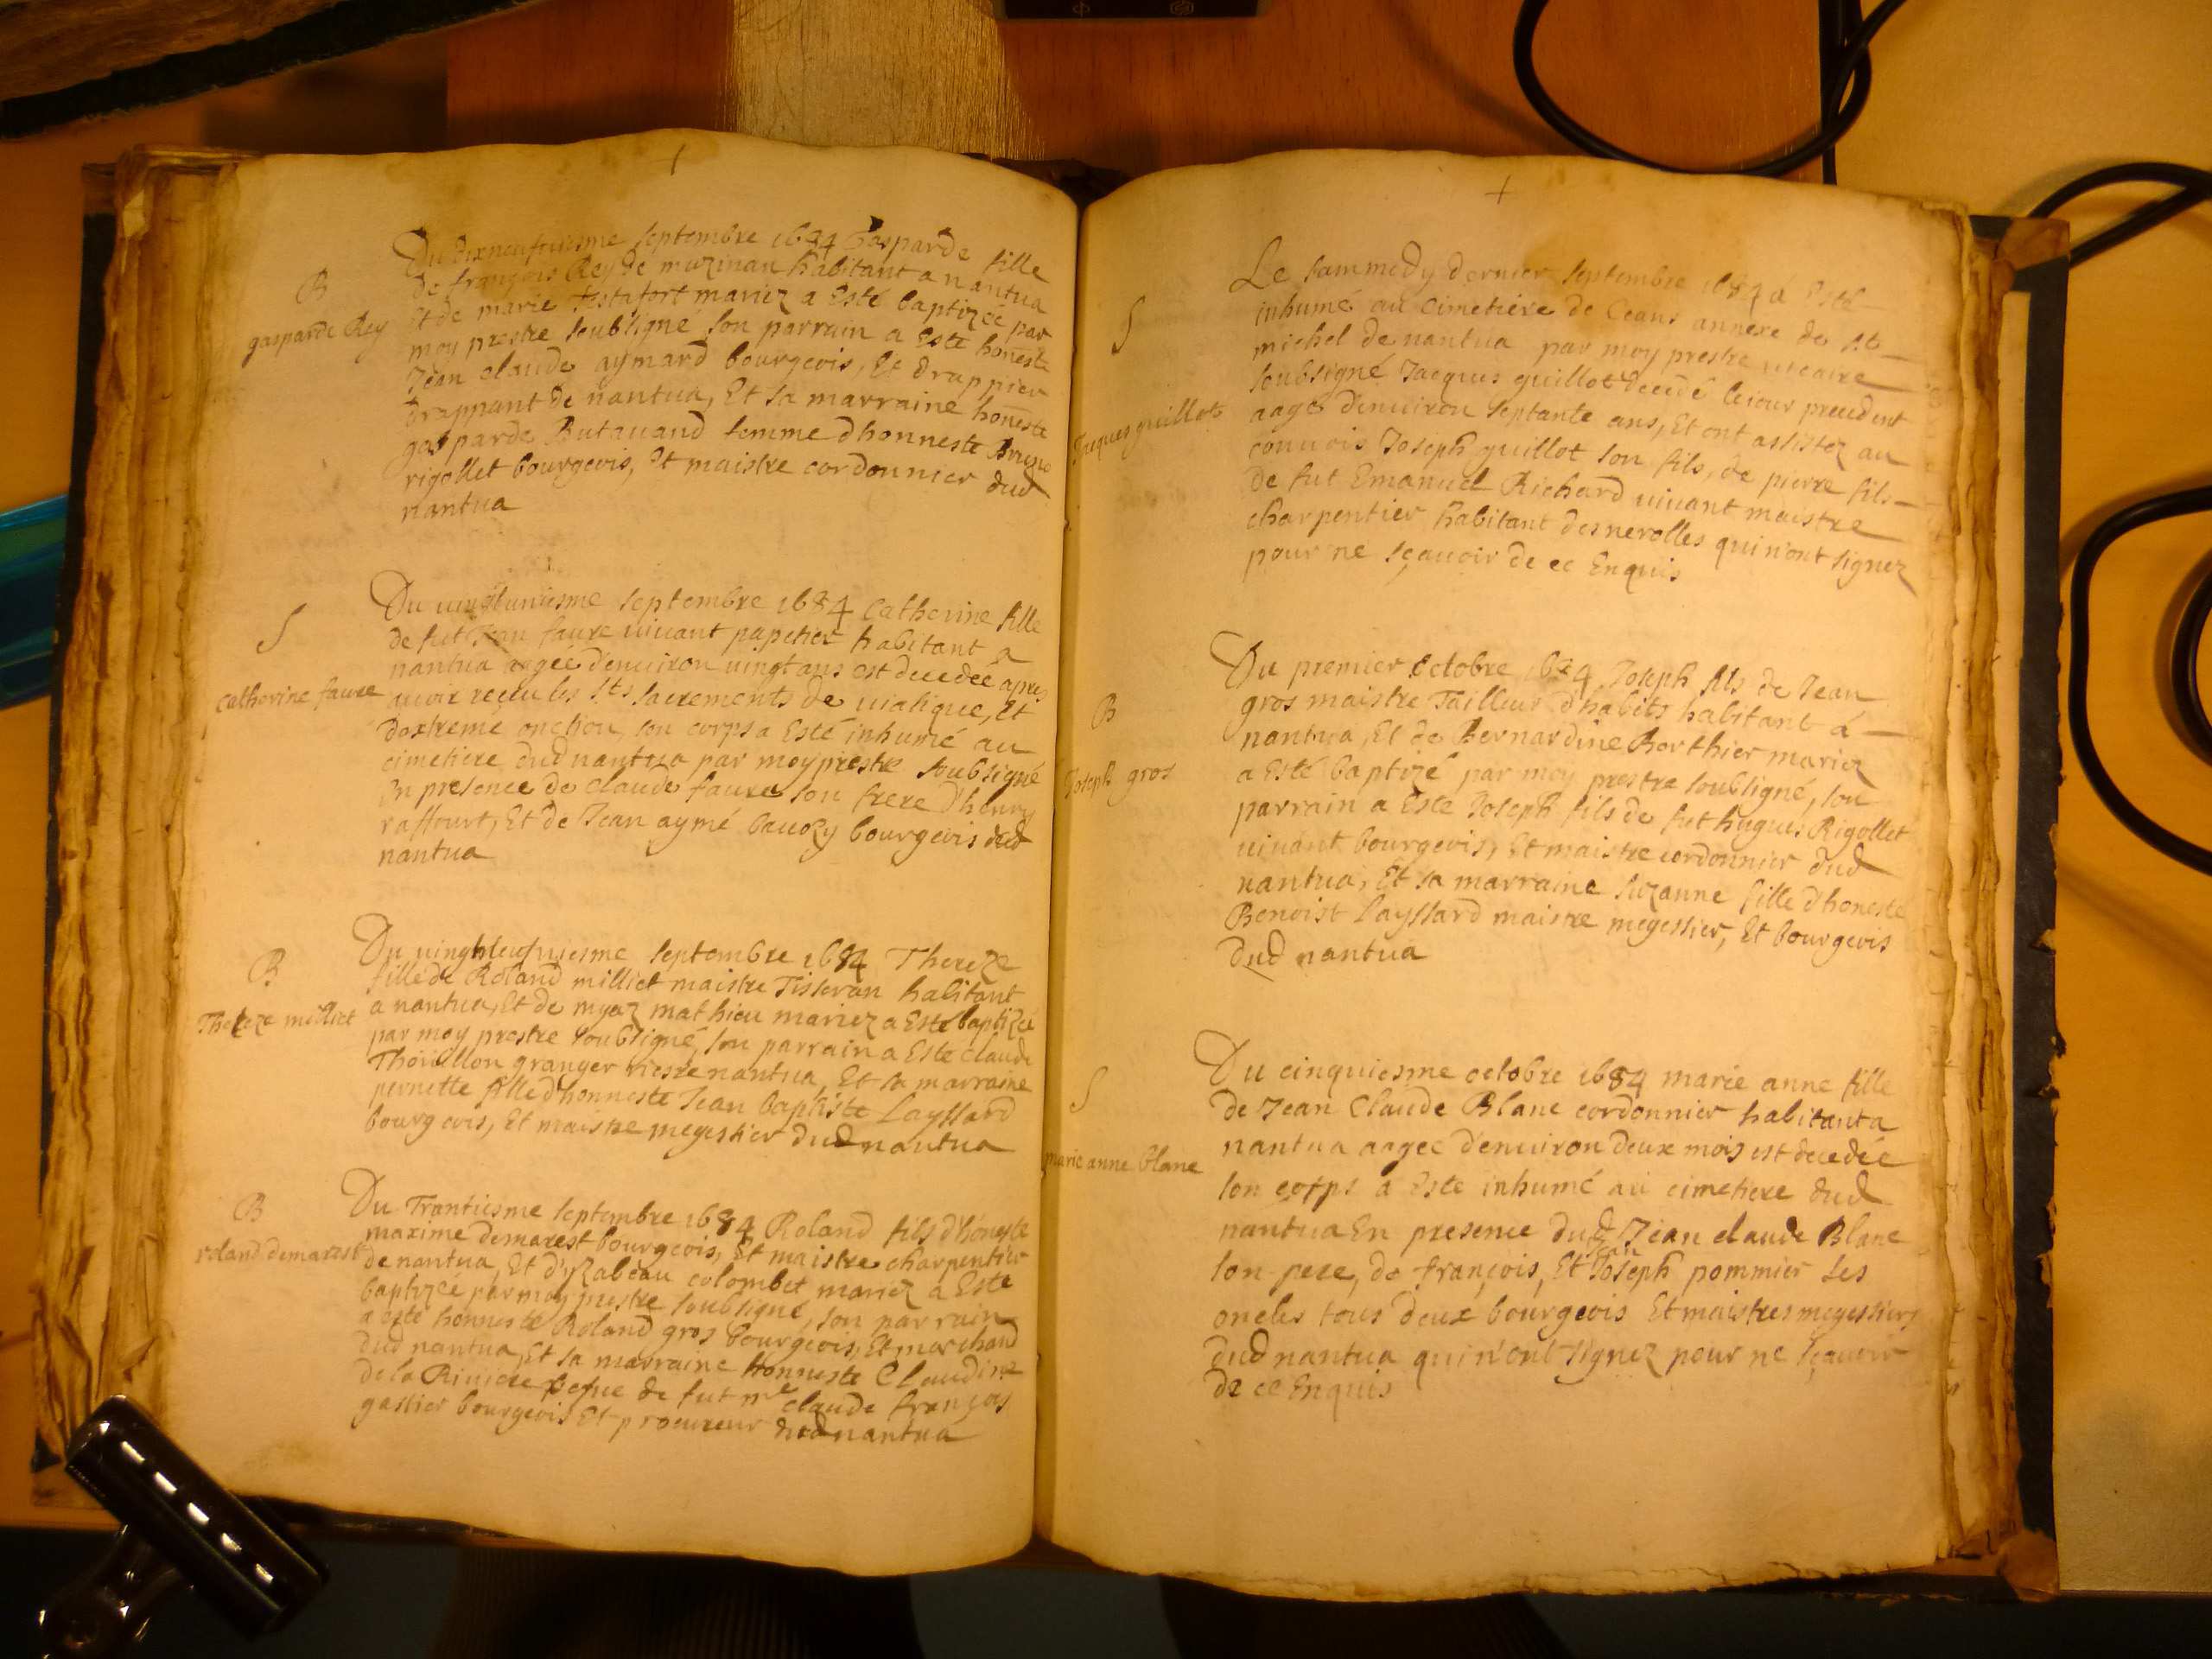 +
B
gasparde Rey
Du dixneufuiesme septembre 1684 Gasparde fille
de françois Rey de muzinan habitant a nantua
Et de marie Testafort mariez a Esté baptizée par
moy prestre soubsigné son parrain a Este honeste
Jean claude aymard bourgeois, Et drappier
drappant de nantua, Et sa marraine honeste
gasparde Butauand femme dhonneste Bruno
rigollet bourgeois, Et maistre cordonnier dud
nantua
S
catherine faure
Du uingtuniesme septembre 1684 Catherine fille
de fut Jean faure uiuant papetier habitant a
nantua aagée d'enuiron uingt ans est decedée apres
auoir receu les Sts sacrements de uiatique, Et
dextreme onction, son corps a Esté inhumé au
cimetiere dud nantua par moy prestre soubsigné
En presence de claude faure son frere d'henry
raffourt, Et de Jean aymé bauozy bourgeois dud
nantua
B
Thereze milliet
Du uingtneufuiesme septembre 1684 Thereze
fille de Roland milliet maistre Tisseran habitant
a nantua, Et de myaz mathieu mariez a Esté baptizée
par moy prestre soubsigné, son parrain a Este claude
Thoruillon granger riere nantua, Et sa marraine
pernette fille dhonneste Jean baptiste Layssard
bourgeois, Et maistre megissier dud nantua
B
roland demarest
Du Trantiesme septembre 1684 Roland fils d'honeste
maxime demarest bourgeois, Et maistre charpentier
de nantua, Et d'yzabeau colombet mariez a Este
baptizé par moy prestre soubsigné, son parrain
a esté honneste Roland gros bourgeois, Et marchand
dud nantua, Et sa marraine honneste Claudine
de la Riuiere uefue de fut me claude françois
gastier bourgeois Et procureur dud nantua
+
S
Jacques guillot
Le sammedy dernier septembre 1684 a Esté
inhumé au cimetiere de Ceans annexe de st
michel de nantua par moy prestre uicaire
soubsigné Jacques guillot decedé le iour precedent
aagé d'enuiron septante ans, Et ont assistez au
conuois Joseph guillot son fils, de pierre fils
de fut Emanuel Richard uiuant maistre
charpentier habitant des nerolles qui n'ont signez
pour ne sçauoir de ce Enquis
B
Joseph gros
Du premier octobre 1684 Joseph fils de Jean
gros maistre Tailleur d'habits habitant á
nantua, Et de Bernardine Borthier mariez
a Esté baptizé par moy prestre soubsigné, son
parrain a Este Joseph fils de fut hugues Rigollet
uiuant bourgeois, Et maistre cordonnier dud
nantua, Et sa marraine suzanne fille d'honeste
Benoist Layssard maistre megissier, Et bourgeois
dud nantua
S
marie anne blanc
Du cinquiesme octobre 1684 marie anne fille
de Jean Claude Blanc cordonnier habitant a
nantua aagee d'enuiron deux mois est decedée
son corps a Este inhumé au cimetiere dud
nantua En presence dud Jean claude Blanc
son pere, de françois, Et Jean Joseph pommier ses
oncles tous deux bourgeois Et maistres megissiers
dud nantua qui n'ont signez pour ne sçauoir
de ce Enquis